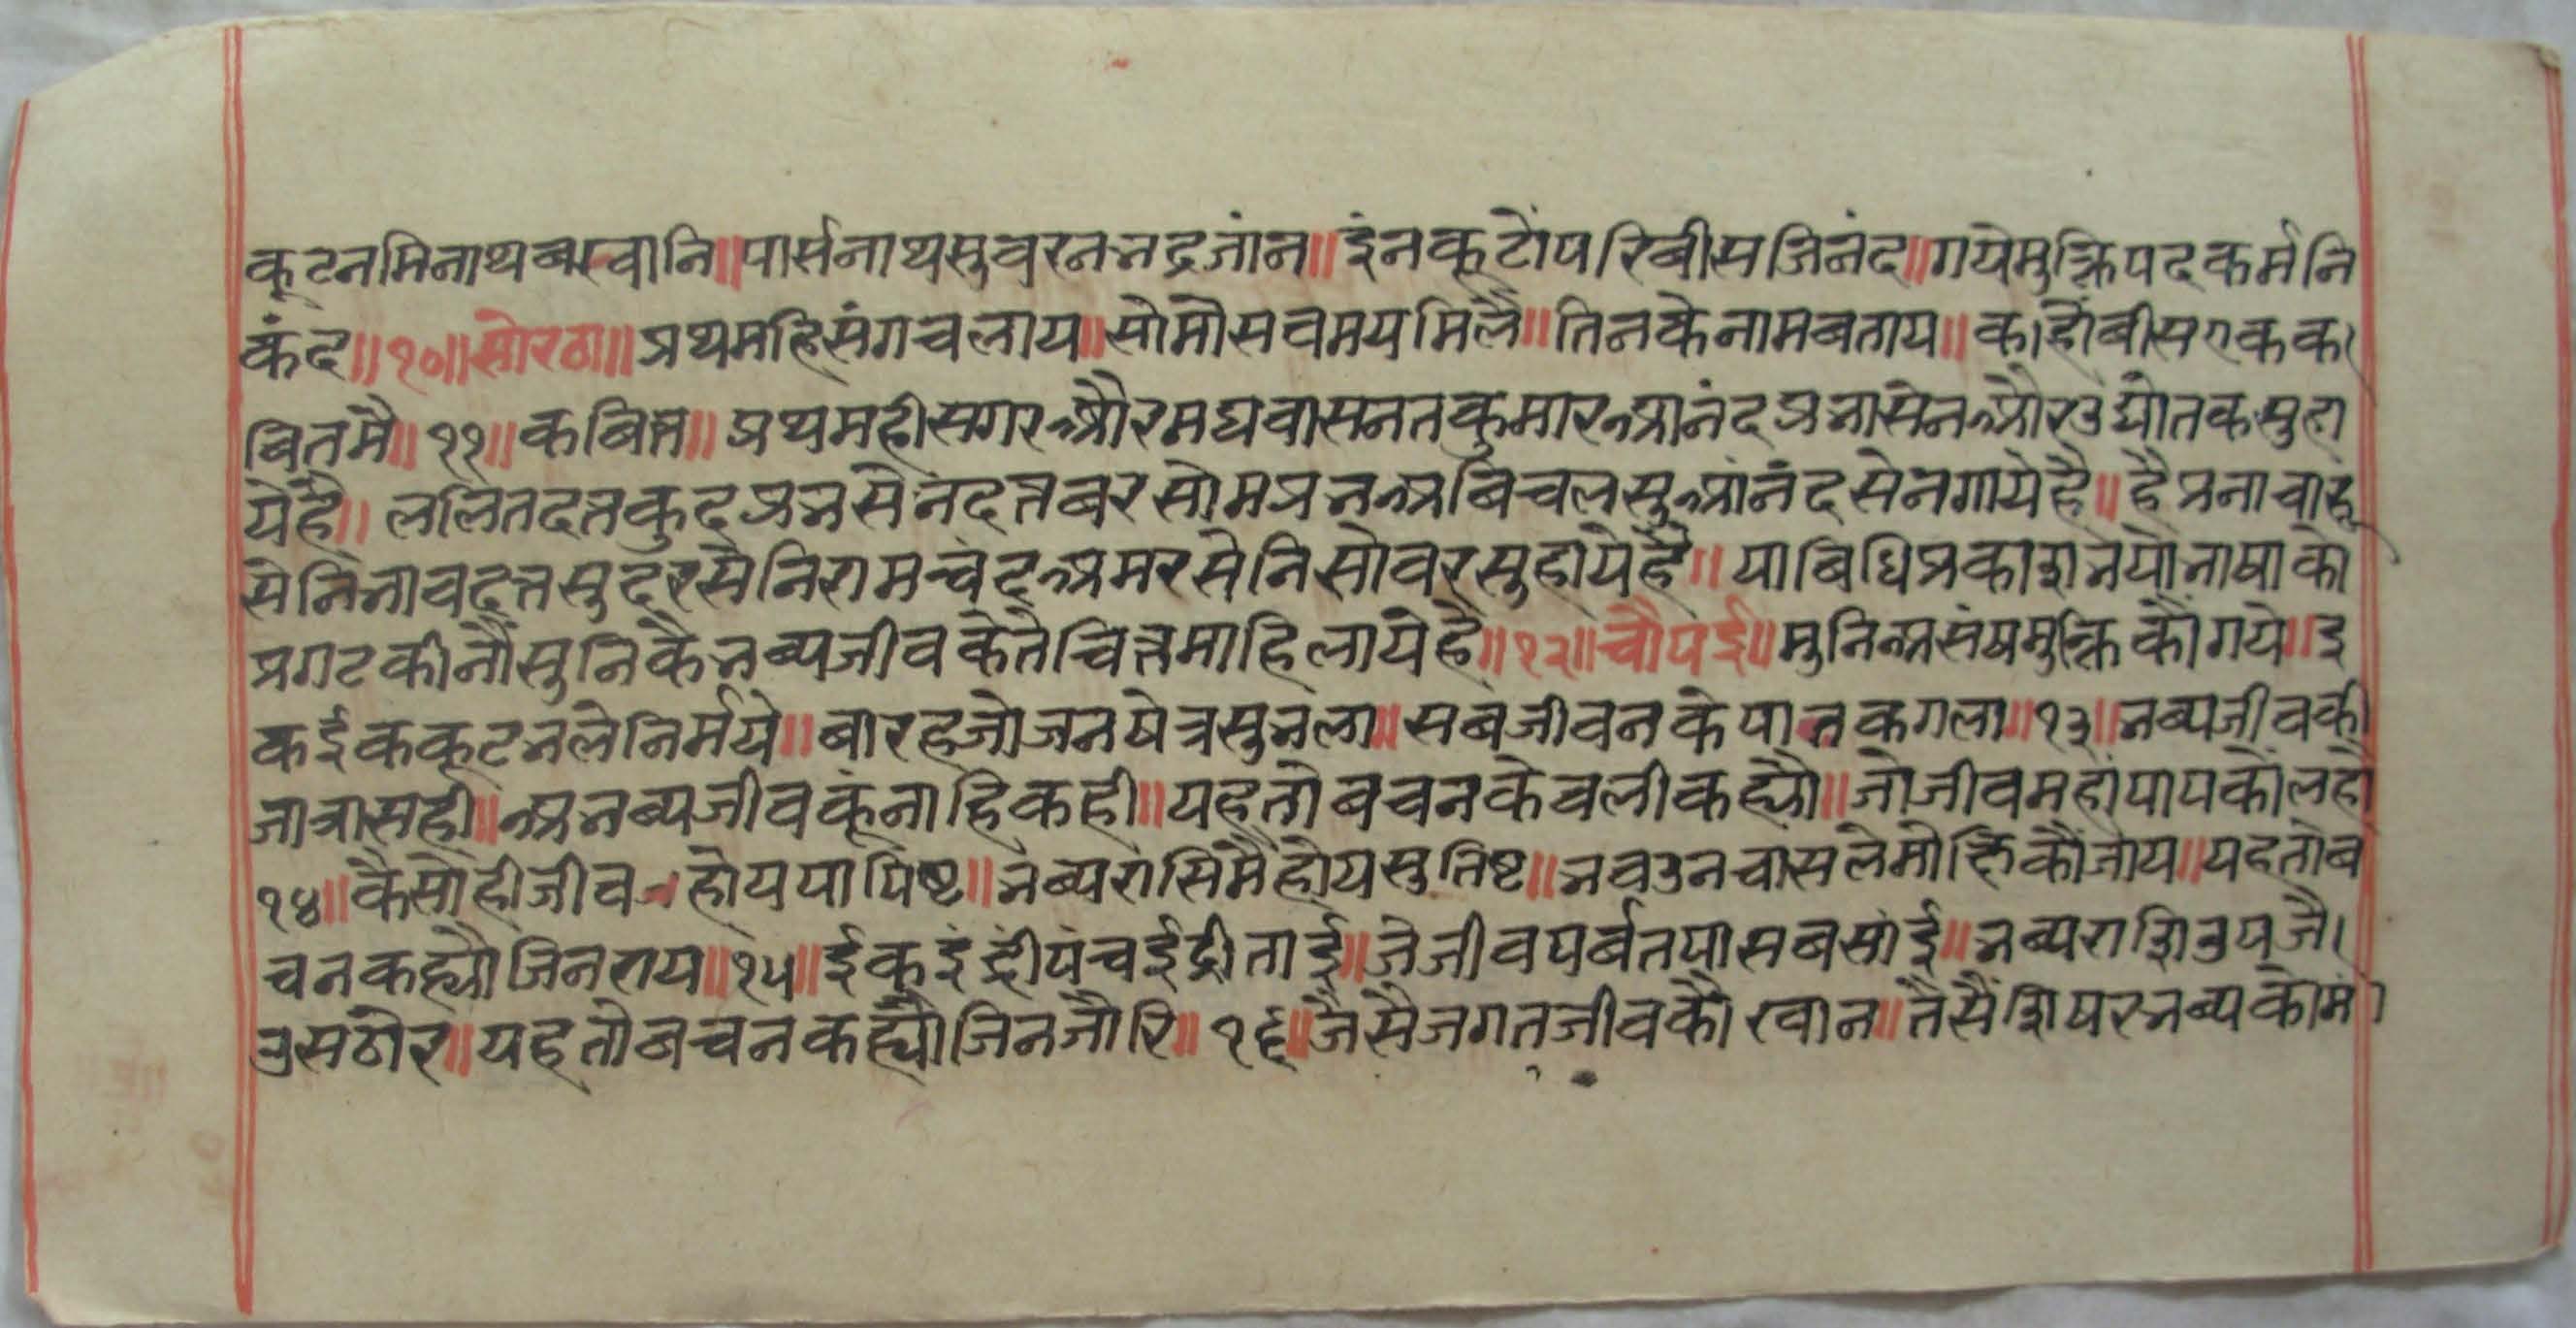 कूटनमिनाथबखानि॥पार्सनाथसुवरनभद्रजांन॥इंनकूटोंपरिबीसजिनंद॥गयेमुक्तिपदकर्मनि
कंद॥१०॥सोरठा॥प्रथमहिसंगचलाय॥सोमौसवमयमिलै॥तिनकेनामबताय॥कहौंबीसएकक
बितमै॥११॥कबित्त॥प्रथमहीसगरऔरमघवासनतकुमारआनंदप्रभासेनऔरउद्योतकसुहा
येहै॥ललितदतकुदप्रभसेनदतबरसोमप्रभअबिचलसुआनंदसेनगायेहै॥हैप्रभाचारू
सेनिभावदत्तसुदरसेनिरामचंदअमरसेनिसोवरसुहायेहै॥याबिधिप्रकाशभयौभाषाको
प्रगटकीनौंसुनिकैभव्यजीवकेतेचित्तमाहिलायेहै॥१२॥चौपई॥मुनिअसंषमुक्तिकौंगये॥इ
कईककूटभलेनिर्मये॥बारहजोजनषेत्रसुभला॥सबजीवनकेपातकगला॥१३॥भव्यजीवकी
जात्रासही॥अभव्यजीवकूंनाहिकही॥यहतोबचनकेवलीकह्यौ॥जोजीवमहांपापकोंलहौ
१४॥कैसोहीजीवहोयपापिष्ट॥भव्यरासिमैहोयसुतिष्ट॥भवउनचासलेमोक्षिकौंजाय॥यहतोब
चनकह्यौजिनराय॥१५॥ईकइंद्रीपंचईद्रीताई॥जेजीवपर्बतपासबसांई॥भव्यराशिउपजै
उसठोर॥यहतोबचनकह्यौजिनजौरि॥१६॥जैसैजगतजीवकौखान॥तैसैंशिषरभव्यकोमं